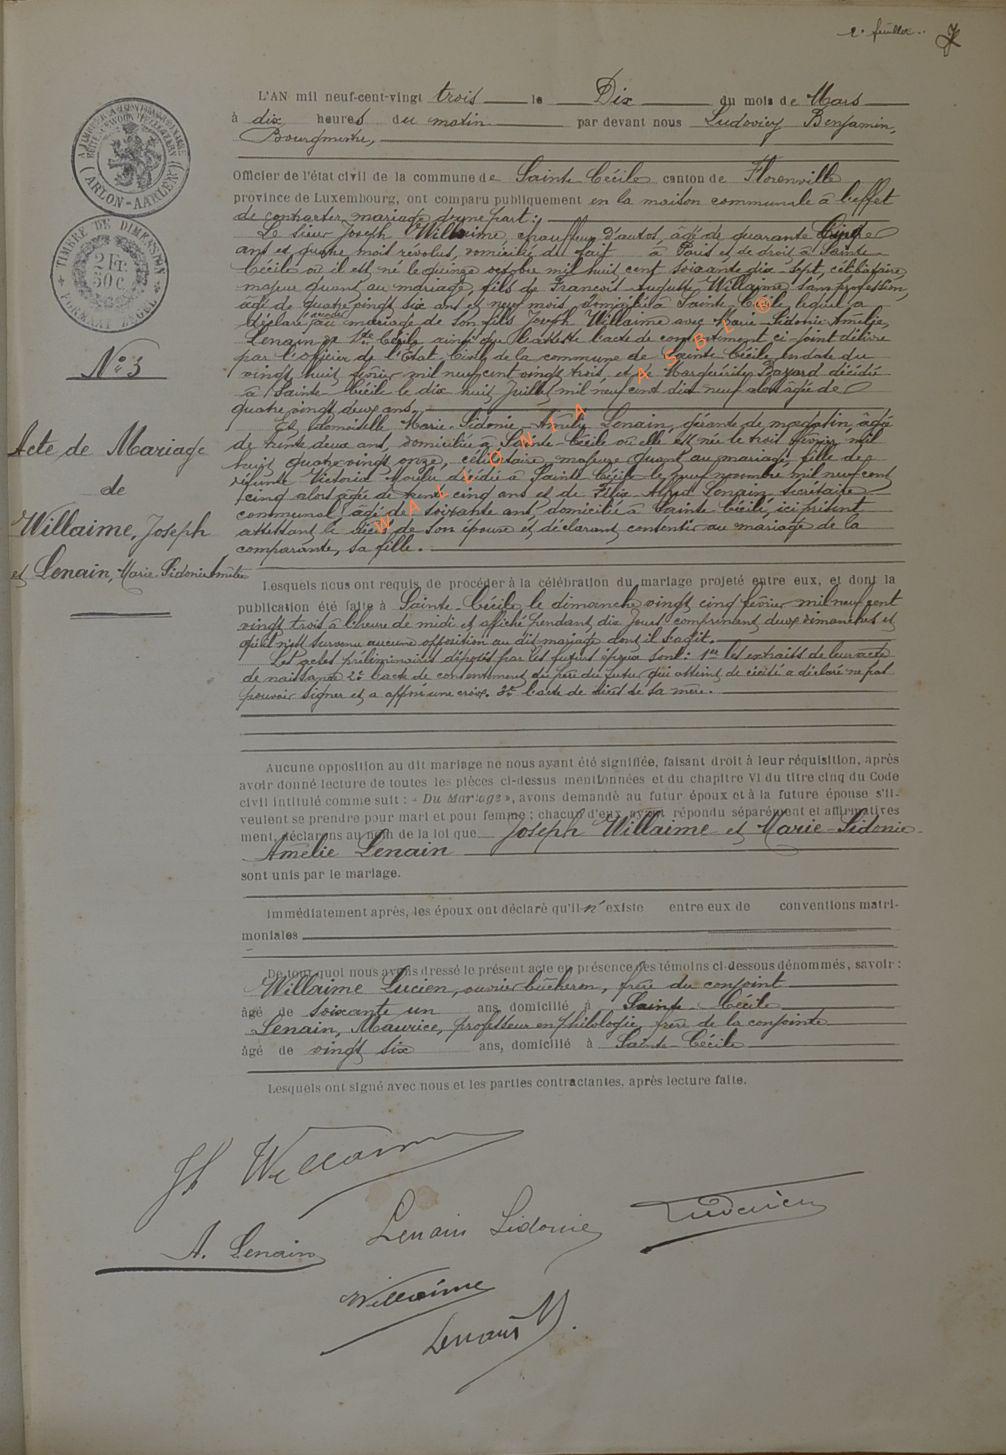 2e feuillet
L'AN mil neuf-cent-vingt trois le Dix du mois de Mars
à dix heures du matin par devant nous Ludovicy Benjamin,
Bourgmestre,
Officier de l'état civil de la commune de Sainte Cécile canton de Florenville
province de Luxembourg, ont comparu publiquement en la maison communale à l'effet
de contracter mariage d'une part :
Le sieur Joseph Willaime, chauffeur d'autos, âgé de quarante cinq
ans et quatre mois révolus, domicilié de fait à Paris et de droit à Sainte
Cécile où il est né le quinze octobre mil huit cent soixante dix-sept, célibataire
majeur quant au mariage, fils de François Auguste Willaime sans profession,
âgé de quatre vingt six ans et neuf mois, domicilié à Sainte Cécile, lequel a
déclaré au mariage de son fils Joseph Willaime avec Marie-Sidonie Amélie
Lenain de Ste Cécile ainsi que l'atteste l'acte de consentement ci-joint délivré
par l'officier de l'Etat Civil de la commune de Sainte Cécile, en date du
vingt huit février mil neuf cent vingt trois, et de Marguerite Bazard décédée
à Sainte Cécile le dix huit Juillet mil neuf cent dix neuf alors âgée de
quatre vingt deux ans.
Et demoiselle Marie-Sidonie-Amélie Lenain, gérante de magasin, âgée
de trente deux ans, domiciliée à Sainte-Cécile où elle est née le trois février mil
huit quatre vingt onze, célibataire majeure quant au mariage, fille de
défunte Victoria décédée à Sainte Cécile le neuf novembre mil neuf cent
cinq alors âgée de trente cinq ans et de Félix Alfred Lenain, secrétaire
communal âgé de soixante ans, domicilié à Sainte Cécile, ici présent
attestant le décès de son épouse et déclarant consentir au mariage de la
comparante, sa fille.
Lesquels nous ont requis de procéder à la célébration du mariage projeté entre eux, et dont la
publication été faite à Sainte-Cécile le dimanche vingt cinq février mil neuf cent
vingt trois à l'heure de midi et affiché pendant dix jours comprenant deux dimanches et
qu'il n'est survenu aucune opposition au dit mariage dont il s'agit.
Les actes préliminaires déposés par les futurs époux sont : 1er les extraits de leur acte
de naissance 2e l'acte de consentement du père du futur qui atteint de cécité a déclaré ne pas
pouvoir signer et a apposé une croix. 3e l'acte de décès de sa mère.
Aucune opposition au dit mariage ne nous ayant été signifiée, faisant droit à leur réquisition, après
avoir donné lecture de toutes les pièces ci-dessus mentionnées et du chapitre VI du titre cinq du Code
civil intitulé comme suit : « Du Mariage », avons demandé au futur époux et à la future épouse s'il-
veulent se prendre pour mari et pour femme ; chacun d'eux ayant répondu séparément et affirmatives
ment, déclarons au nom de la loi que Joseph Willaime et Marie-Sidonie-
Amélie Lenain
sont unis par le mariage.
Immédiatement après, les époux ont déclaré qu'il n'existe entre eux de conventions matri-
moniales
De tout quoi nous avons dressé le présent acte en présence des témoins ci-dessous dénommés, savoir :
Willaime Lucien, ouvrier bûcheron, frère du conjoint
âgé de soixante un ans, domicilié à Sainte Cécile
Lenain, Maurice, professeur en Philologie, frère de la conjointe
âgé de vingt six ans, domicilié à Sainte-Cécile
Lesquels ont signé avec nous et les parties contractantes, après lecture faite.
(ARLON-AARLEN)
TIMBRE DE DIMENSION
2 Fr.
50 c.
No 3
Acte de Mariage
de
Willaime, Joseph
et Lenain, Marie Sidonie Amélie
WALLONIA ASBL ®
Jh Willaime
A. Lenain
Lenain Sidonie
Ludovicy
Willaime
Lenain M.